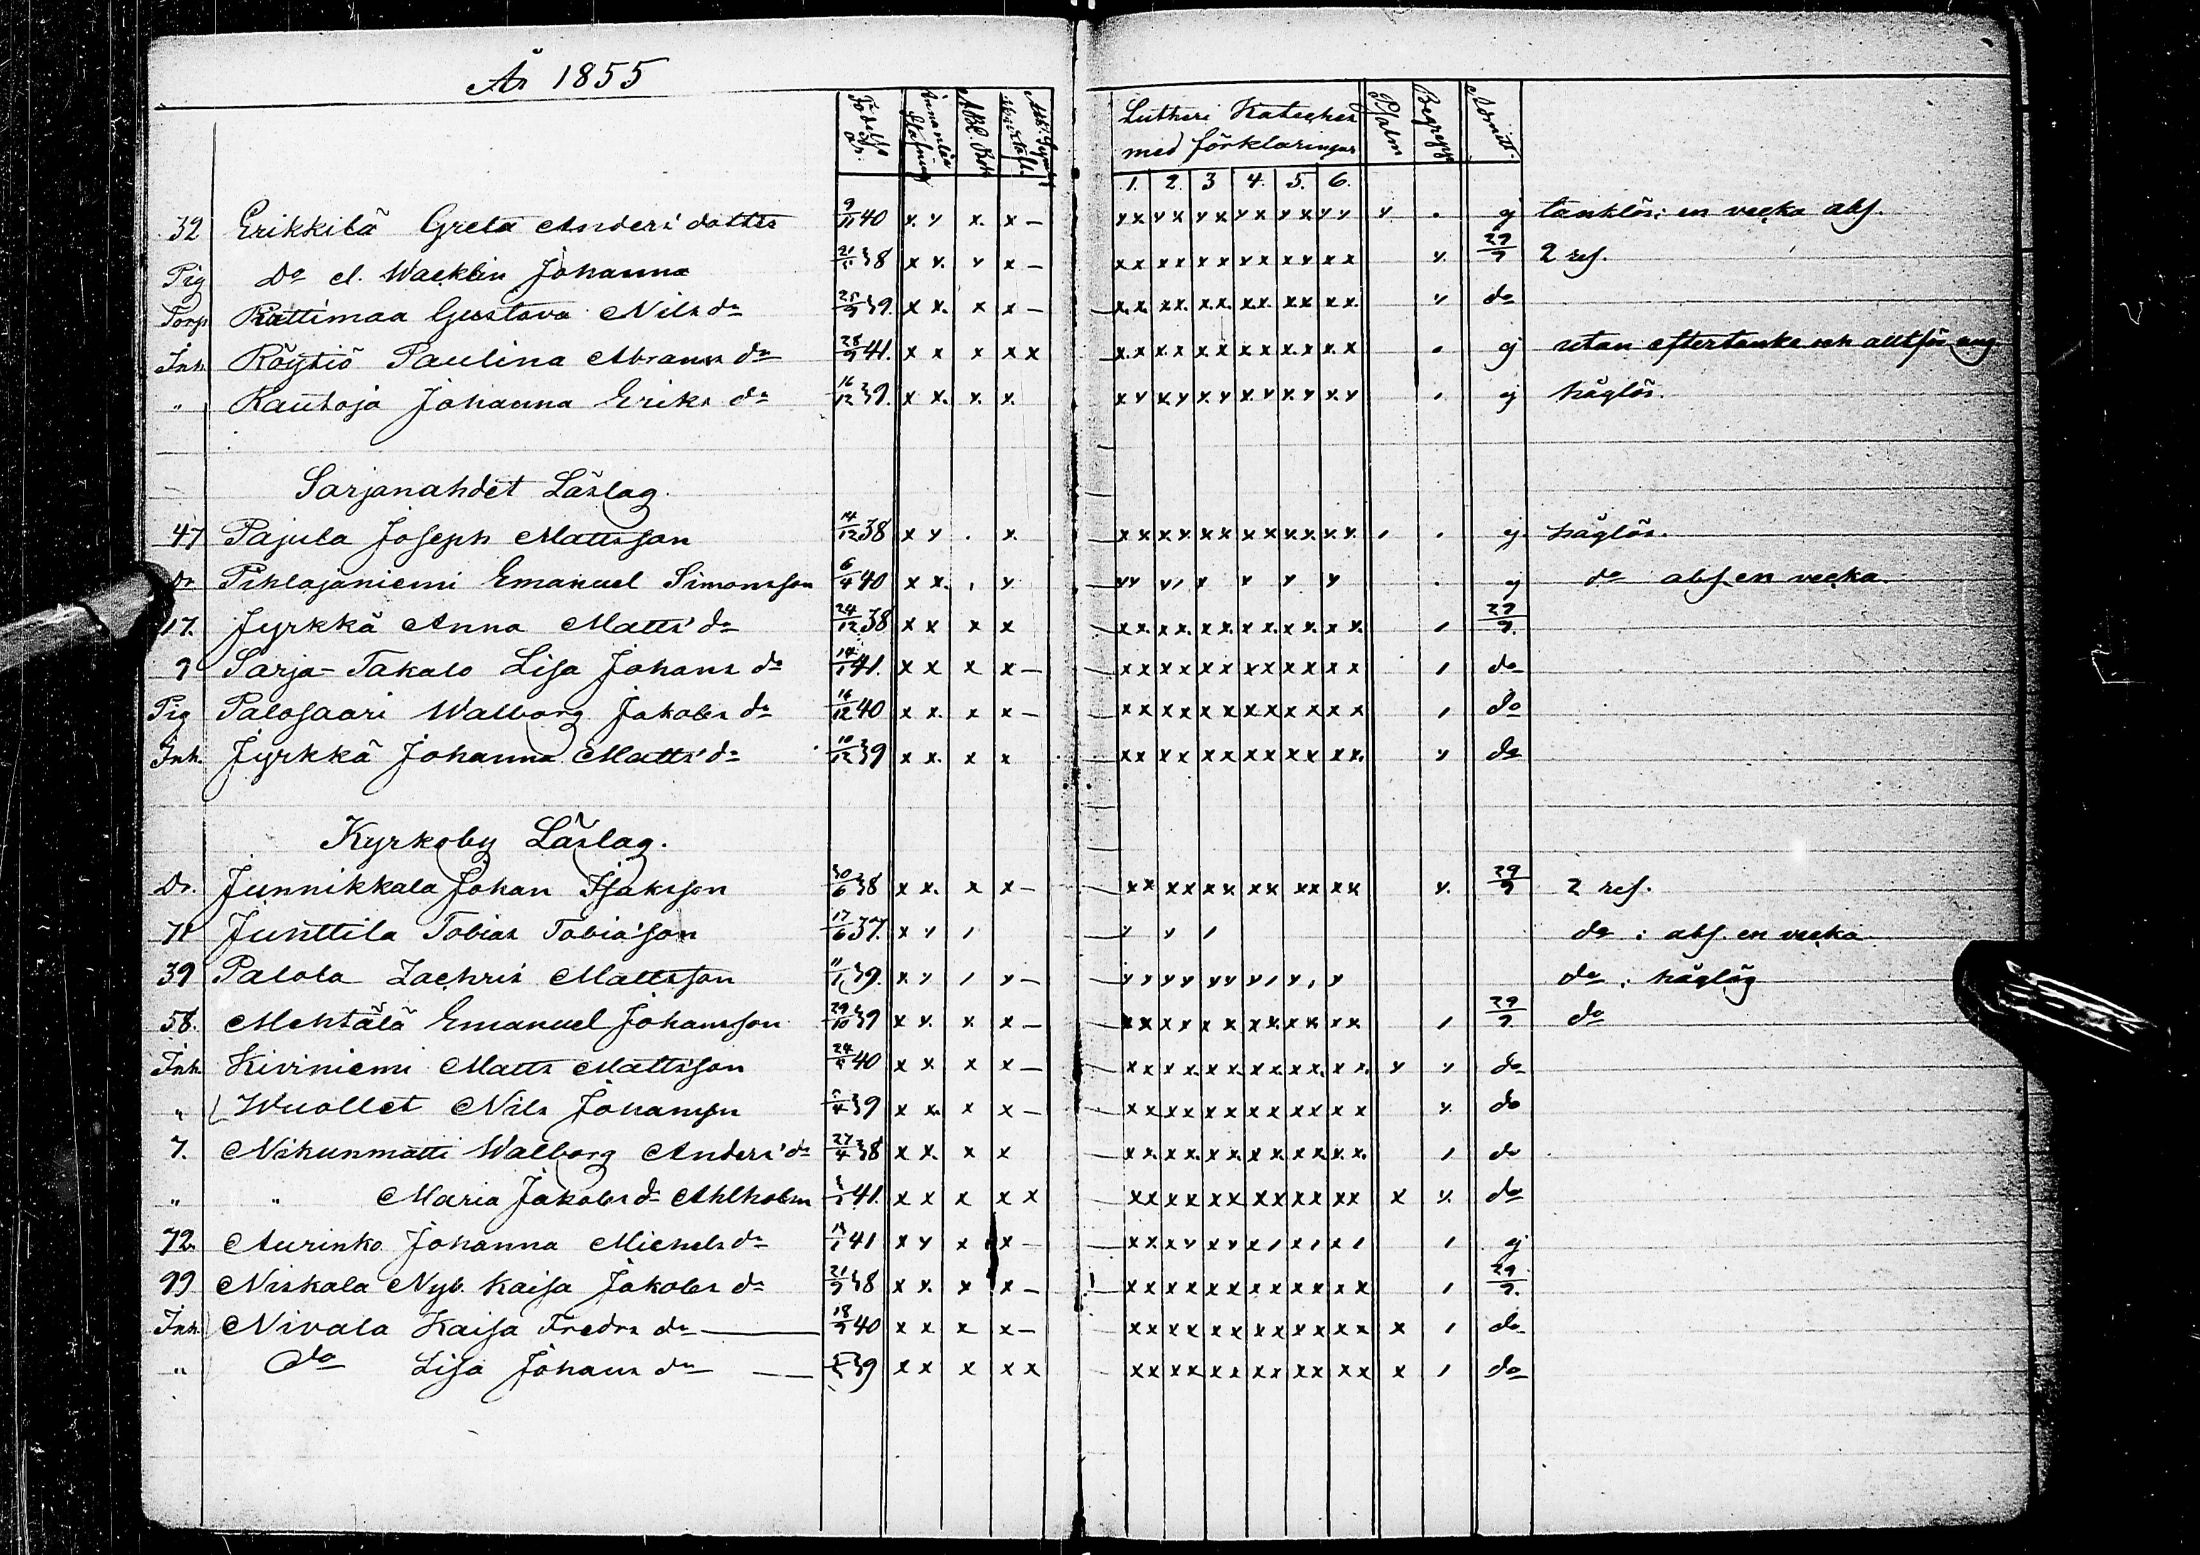 År 1855
Födelse år. Innanläs Stafning ABC Bok Luthers Kateches med förklaringar Psalm Begrepp Admitt.
1. 2. 3 4. 5. 6.
32 Erikkilä Greta Anders dotter 9/11 40 x. y x. x – xx yx yx yx yx yy y . ej tanklös: en vecka abs.
Pig Do el. Wacklin Johanna 21/11 38 x x. y x – xx xx xx yx xy xx x. 29/9 2 res.
Torp Rättimaa Gustava Nils dr 25/9 39. x x. x x – x.x. xx. x.x. xx. xx. xx. y do
Inh. Röytiö Paulina Abrams dr 28/9 41. x x x x x x.x xx xx xx xx xx . ej utan eftertanke och alltför ung
" Rautoja Johanna Eriks dr 16/12 39. x x. x. x. xy xy xy xy xy xy . ej håglös.
Sarjanahdet Läslag.
47 Pajula Joseph Mattsson 14/12 38 x y . x xx xx xx xx xx xx , . ej håglös.
Dr. Pihlajaniemi Emanuel Simonsson 6/4 40 x x. , y yy y, y y y y . ej do abs. en vecka
17. Jyrkkä Anna Matts dr 24/12 38 x x x x xx. xx. xx. xx. xx. xx. , 29/9.
9 Sarja-Takalo Lisa Johans dr 14/1 41. x x x x – xx xx xx xx xx xx , do
Pig Palosaari Walborg Jakobs dr 16/12 40 x x. x x – xx xx xx xx xx xx , do
Inh. Jyrkkä Johanna Matts dr 10/12 39 x x. x x xx xx xx xx xx xx. y do
Kyrkoby Läslag.
Dr. Junnikkala Johan Isaksson 30/6 38 x x. x x – xx xx xx xx xx xx x. 29/9 2 res.
71 Junttila Tobias Tobiasson 17/6 37. x y , y y , do : abs. en vecka
39 Palola Zachris Mattsson 11/1 39. x y , y – y, yy yy y, y, y do : håglös
58. Mehtälä Emanuel Johansson 29/10 39 x x. x. x – xx xx xx xx. xx xx , 29/9. do
Inh. Kiviniemi Matts Mattsson 24/5 40 x x x x – xx xx. xx. xx. xx. xx. y y do
" Wuollet Nils Johansson /4 39 x x. x x – xx xx xx xx xx xx x. do
7. Nikunmatti Walborg Anders dr 27/4 38 x x. x x xx. xx. xx. xx. xx xx. , do
" " Maria Jakobs dr Ahlholm 41. x x x x x xx xx xx xx xx xx x x. do
72. Aurinko Johanna Michels dr /1 41 x y x x – xx xy xy x, x, x, , ej
99 Niskala Nyb. Kaisa Jakobs dr 21/9 38 x x. x x – xx xx xx xx xx xx , 29/9.
Inh. Nivala Kaisa Fredrs dr 18/9 40 x x x x – xx xx xx xx xx xx x , do
" do Lisa Johans dr 39 x x x x x xx xx xx xx xx xx x , do